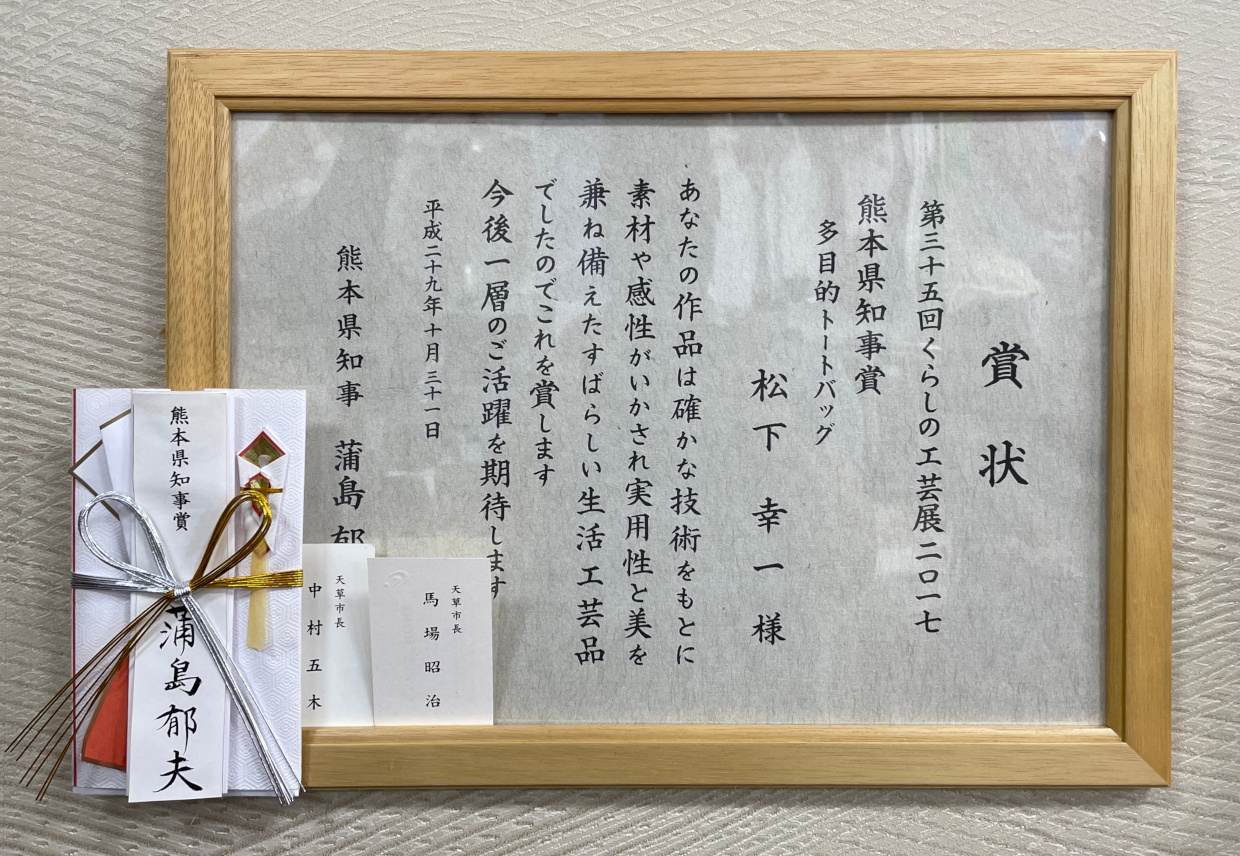 賞状
第三十五回くらしの工芸展二〇一七
熊本県知事賞
多目的トートバッグ
松下幸一様
あなたの作品は確かな技術をもとに
素材や感性がいかされ実用性と美を
兼ね備えたすばらしい生活工芸品
でしたのでこれを賞します
今後一層のご活躍を期待します
平成二十九年十月三十一日
熊本県知事 蒲島郁
天草市長
馬場昭治
天草市長
中村五木
熊本県知事賞
蒲島郁夫